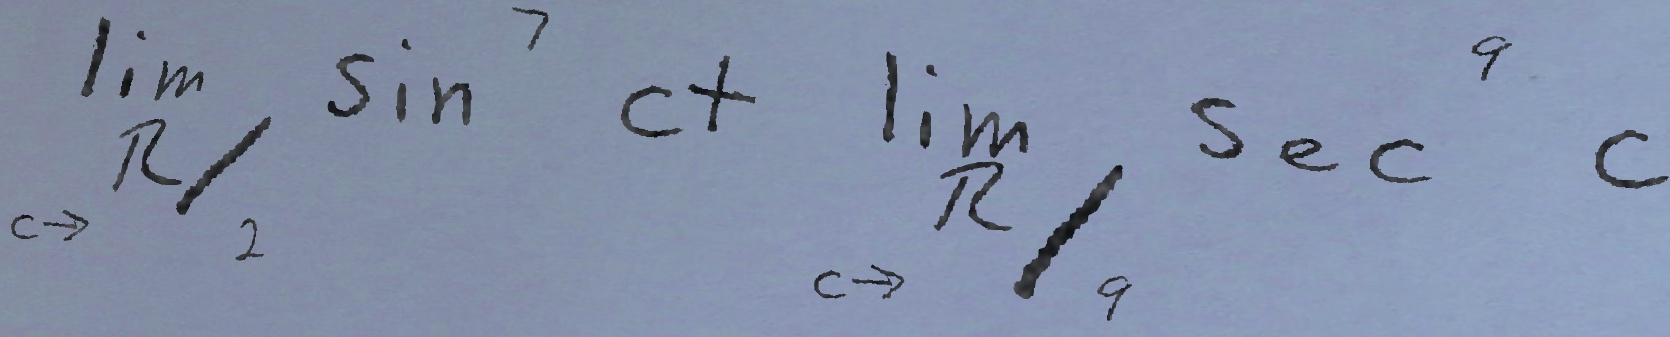 \lim_{c \to \pi/2} \sin^7 c + \lim_{c \to \pi/9} \sec^9 c